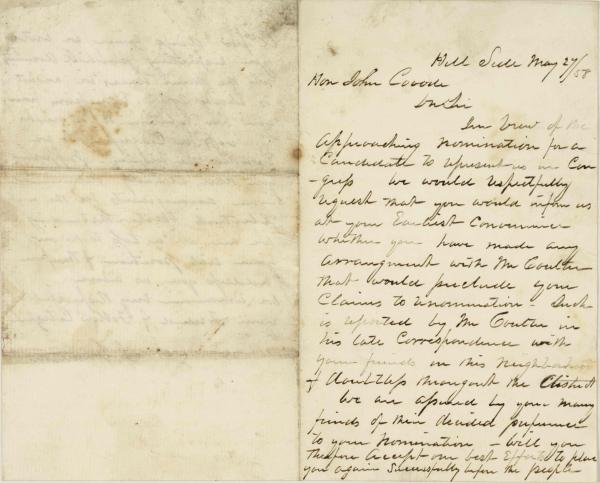 Hill Side May 27/58
Hon John Covode
Dr Sir
In View of the
approaching nomination for a
Candidate to represent us in Con
-gress we would respectfully
request that you would inform us
at your Earliest Convenience
whether you have made any
arrangment with Mr Coulter
that would preclude your
Claims to renomination - Such
is reported by Mr Coulter in
his late Correspondence with
your friends in this Neighborhood
& doubtless througout the District
We are assured by your many
friends of their decided preference
to your Nomination - Will you
therefore accept our best Efforts to place
you again Successfully before the people